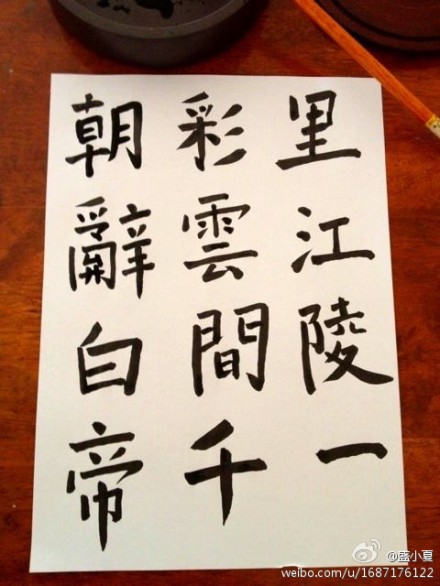 朝辭白帝
彩雲間千
里江陵一
weibo.com/u/1687176122